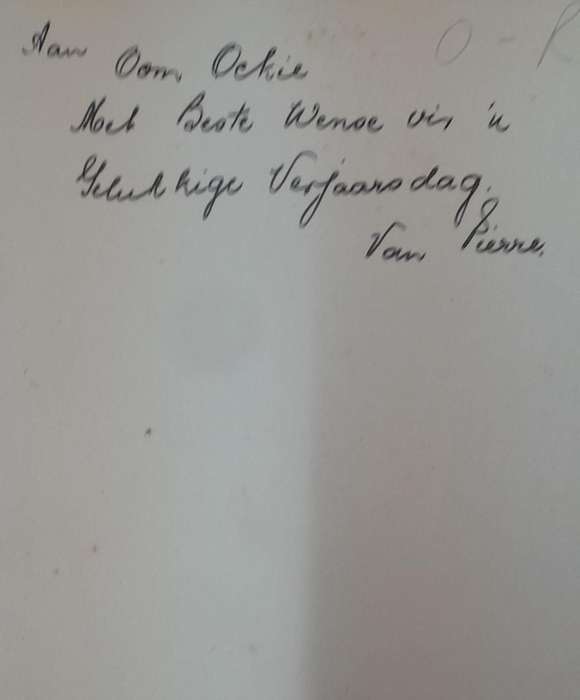 Aan
Oom Ockie
Met Beste Wense vir 'n
Gelukkige Verjaarsdag.
Van Pierre.